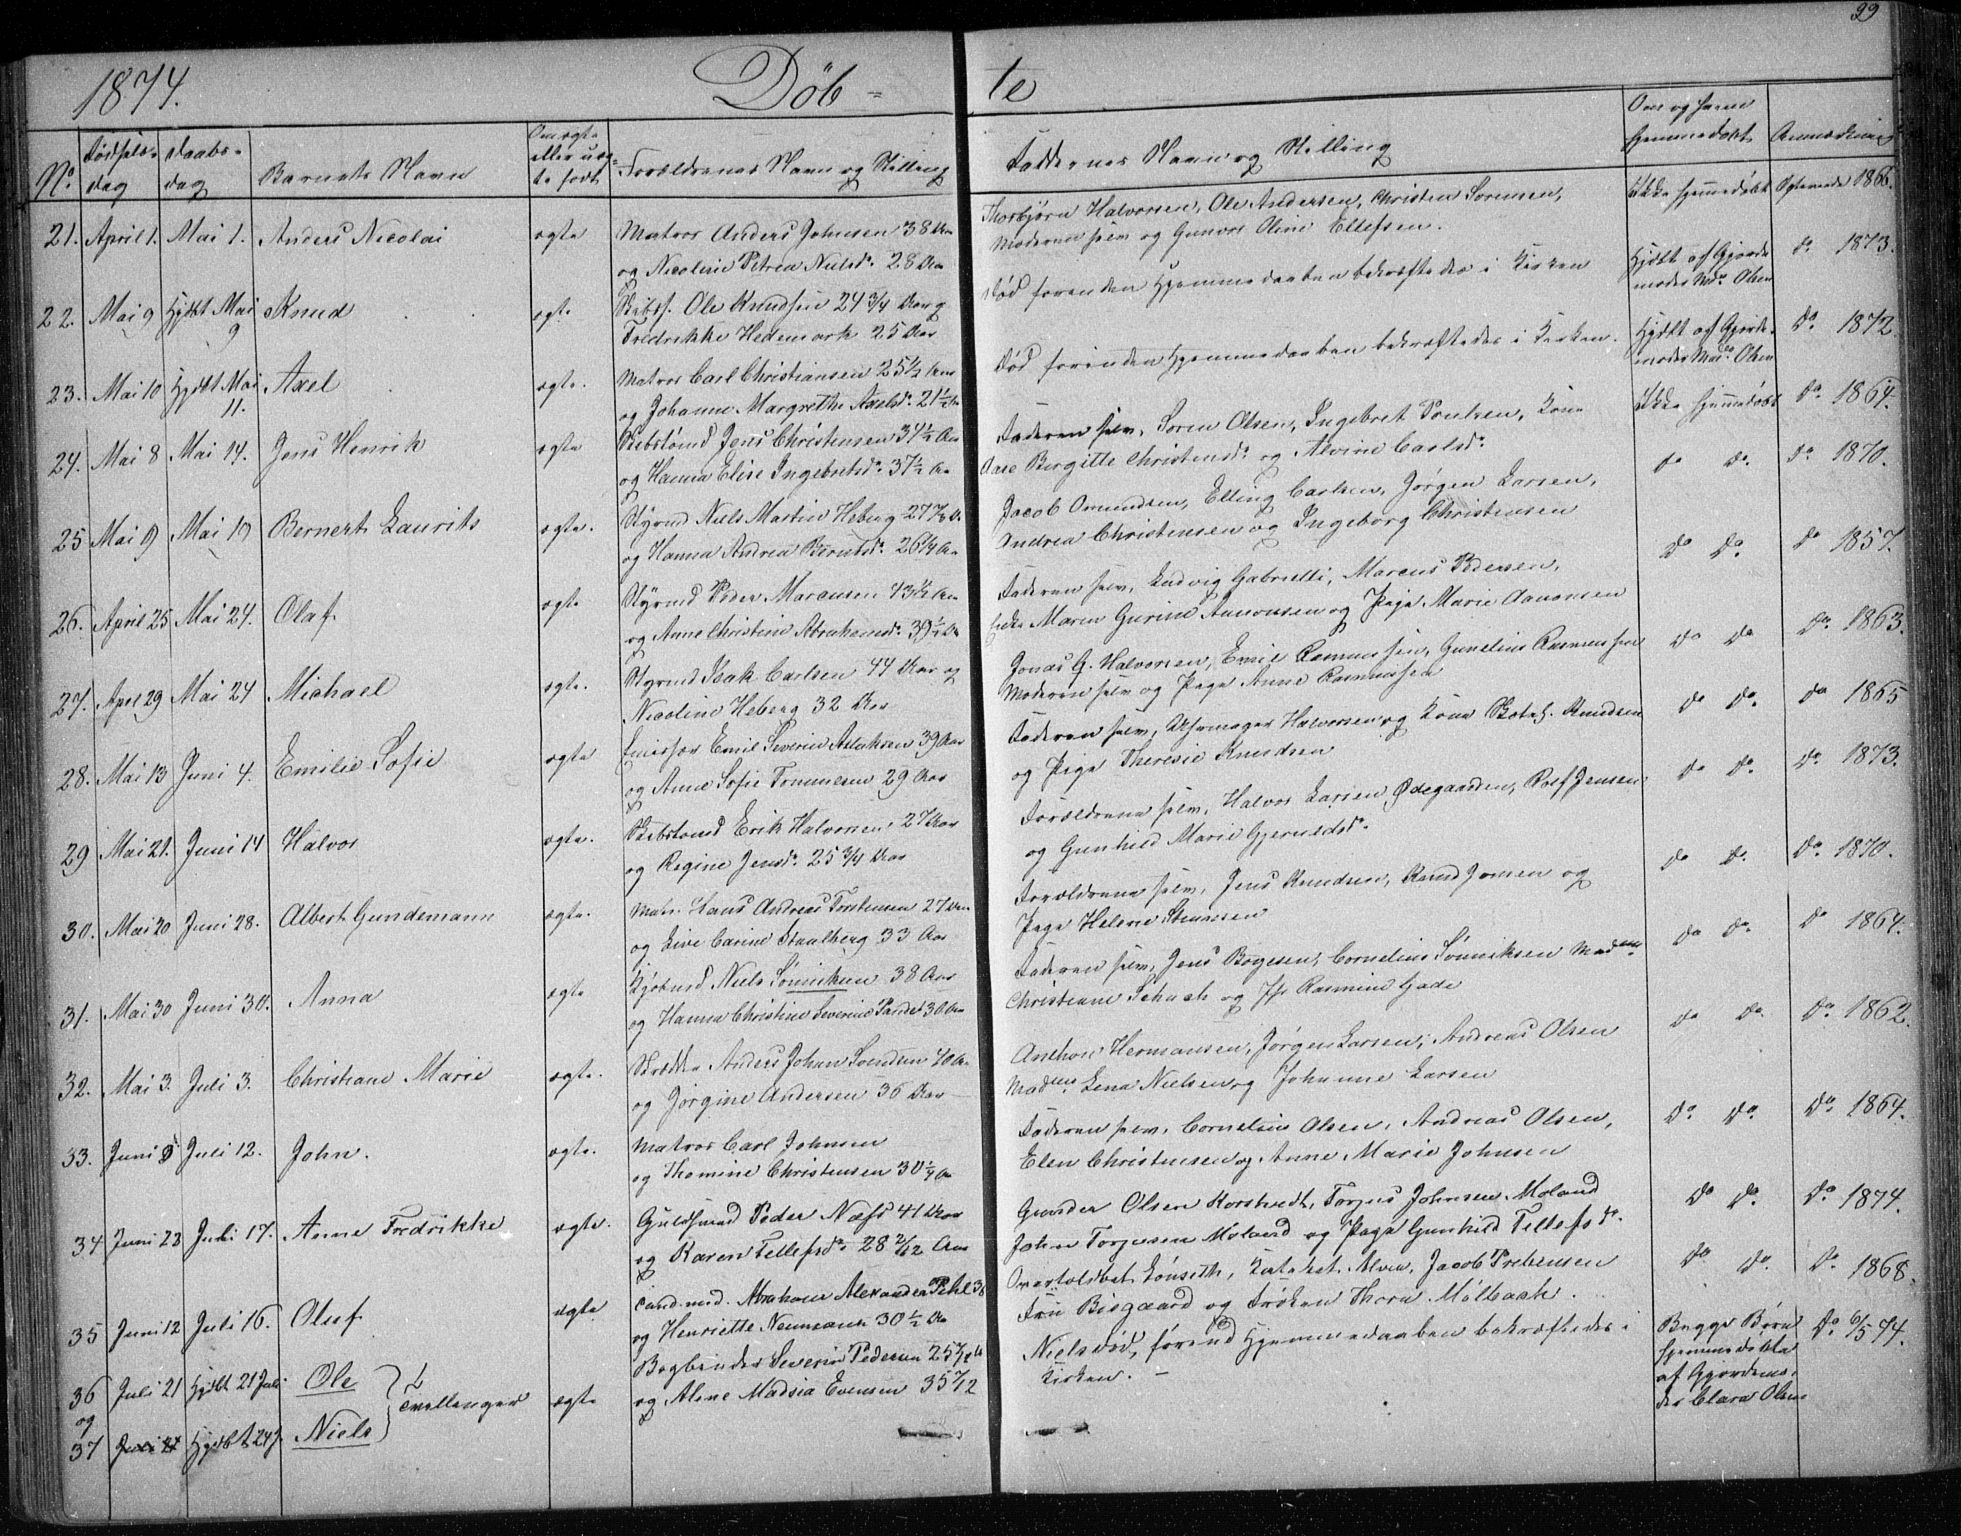 99
1874. Döb- te
No Födsels-dag Daabs-dag Barnets Navn Om ægte eller uægte født Forældrenes Navn og Stilling Faddernes Navn og Stilling Om og hvem hjemmedøbt Anmærkning
21. April 1. Mai 1. Anders Nicolai ægte Matros Anders Johnsen 38 Aar Thorbjörn Halvorsen, Ole Andersen, Christen Sorensen, Ikke hjemmedøbt Ægteviede 1866.
og Nicoline Petrea Nielsd. 28 Aar Moderen selv og Gunvor Oline Ellefsen.
22. Mai 9 Hjdbt Mai 9 Knud ægte Skibsf. Ole Knudsen 24 3/4 Aar og Død forinden Hjemmedaaben bekræftedes i Kirken Hjdbt af Gjorde- do 1873.
Fredrikke Hedemark 25 Aar moder Md. Olsen
23. Mai 10 Hjdbt Mai 11. Axel ægte. Matros Carl Christiansen 25 1/2 Aar Død forinden Hjemmedaaben bekræftedes i Kirken. Hjdbt af Gjorde- Do 1872
og Johanne Margrethe Axelsd. 21 1/2 Aar moder Mad. Olsen
24. Mai 8 Mai 14. Jens Henrik ægte Skibstømd Jens Christensen 34 1/2 Aar Faderen selv, Søren Olsen, Ingebret Poulsen, Kone Ikke hjemmedøbt Do 1864.
og Hanna Elise Ingebretsd. 37 1/2 Aar Aase Birgitte Christensd. og Alvine Carlsd.
25 Mai 9 Mai 19 Bernert Laurits ægte. Styrmd Niels Martin Heberg 27 Jacob Omundsen, Elling Carlsen, Jørgen Larsen, do do. do 1870.
og Hanna Andrea Berntsd. 26 1/4 Aar Andrea Christensen og Ingeborg Christensen
26. April 25 Mai 24. Olaf ægte Styrmd Peder Marcusen 43 1/2 Aar Faderen selv, Ludvig Gabrielli, Marcus Pedersen, do do. do 1857.
og Anne Christine Abrahamsd. 39 1/2 Aar Enke Maren Gurine Aanonsen og Pige Marie Aanonsen
27. April 29 Mai 24 Michael ægte. Styrmd Isak Carlsen 44 Aar og Jonas G. Halvorsen, Emil Rasmussen, Gunelius Rasmussen do do Do. 1863.
Nicoline Heberg 32 Aar Moderen selv og Pige Anne Rasmussen
28. Mai 13 Juni 4. Emilie Sofie ægte Emil Severin Aslaksen 39 Aar Faderen selv, Uhrmager Halvorsen og Kone Knudsen do do. do 1865
og Anne Sofie Tommesen 29 Aar og Pige Theresie Knudsen
29 Mai 21. Juni 14 Halvor ægte. Skibstømd Erik Halvorsen 27 Aar Forældrene selv, Halvor Larsen Ødegaarden, Rolf Jensen do do. Do. 1873.
og Regine Jensd. 25 3/4 Aar og Gunhild Marie Gjeruldsd.
30. Mai 20 Juni 28. Albert Gundemann ægte. Matr. Hans Andreas Torstensen 27 Aar Forældrene selv, Jens Knudsen, Knud Jonsen og do do. Do. 1870.
og Live Carine Staalberg 33 Aar Pige Helene Stenersen
31. Mai 30 Juni 30. Anna ægte Kjøbmd Niels Sönniksen 38 Aar Faderen selv, Jens Bogesen, Cornelius Sönniksen Madme do do. Do 1864.
og Hanna Christine Severine Pander 30 Aar Christiane Schach og Jfr Rasmine Gade
32. Mai 3. Juli 3. Christiane Marie ægte. Skrædder Anders Johan Svendsen 40 Aar Anthon Hermansen, Jørgen Larsen, Andreas Olsen do do. Do. 1862.
og Jörgine Andersen 36 Aar Madme Lena Nielsen og Johanne Larsen
33. Juni Juli 12. John. ægte. Matros Carl Johnsen Faderen selv, Cornelius Olsen, Andreas Olsen, do do. Do. 1864.
og Thomine Christensen 30 1/4 Aar Elen Christensen og Anne Marie Johnsen
34 Juni 23 Juli 17. Anne Fredrikke ægte. Guldsmed Peder Næss 41 Aar Gunder Olsen Korstvedt, Torjus Johnsen Moland Do Do. Do 1874.
og Karen Tellefsd. 28 2/12 Aar John Torjusen Moland og Pige Gunhild Tellefsd.
35 Juni 12 Juli 16. Oluf ægte Cand. med. Abraham Alexander Pihl 38 Overtoldbet. Lönseth, Katechet Alver, Jacob Prebensen do do. Do. 1868.
og Henriette Neumann 30 1/2 Aar Fru Bisgaard og Frøken Thora Möllbach.
36 Juli 21 Hjdbt 21 Juli Ole } 2 Tvillinger ægte Bogbinder Severin Pedersen 25 Niels död, förend Hjemmedaaben bekræftedes i Begge Børn Do. 6/5 74.
og og Alene Madsia Evensen 35 7/12 Kirken. – hjemmedøbte
37 Juli Hjdbt 24 J. Niels af Gjordemo-
der Clara Olsen